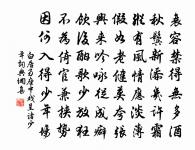 衰容禁得無多酒
秋鬢新添幾許霜
縱有風情應淡薄
假如老健莫誇張
興來吟詠從成癖
飲後酣歌少放狂
不為倚官兼挾勢
因何入得少年場
白居易座中戲呈諸少
年詩